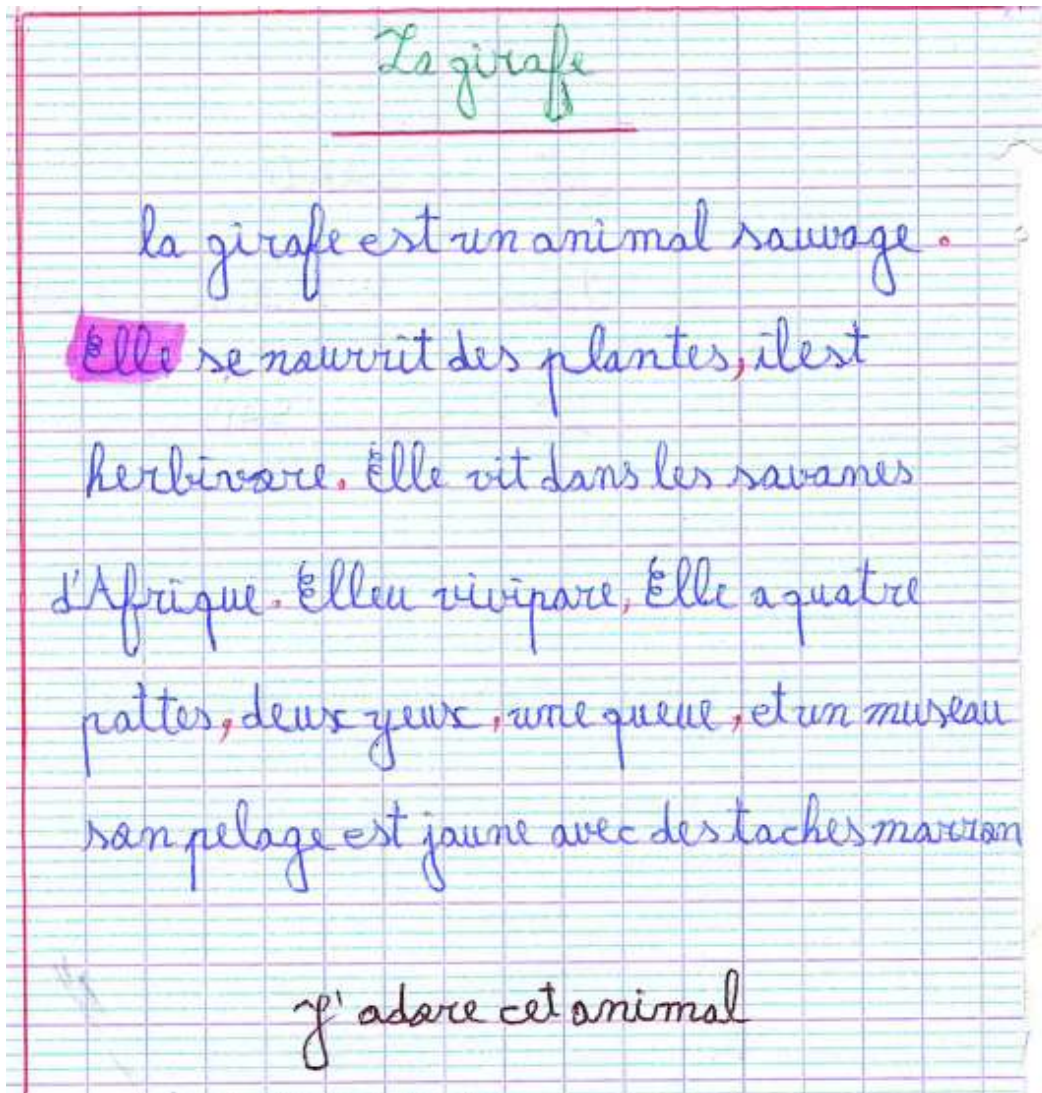 La girafe
la girafe est un animal sauvage.
Elle se nourrit des plantes, il est
herbivore. Elle vit dans les savanes
d'Afrique. Elleu vivipare, Elle a quatre
pattes, deux yeux, une queue, et un museau
son pelage est jaune avec des taches marron
J'adore cet animal